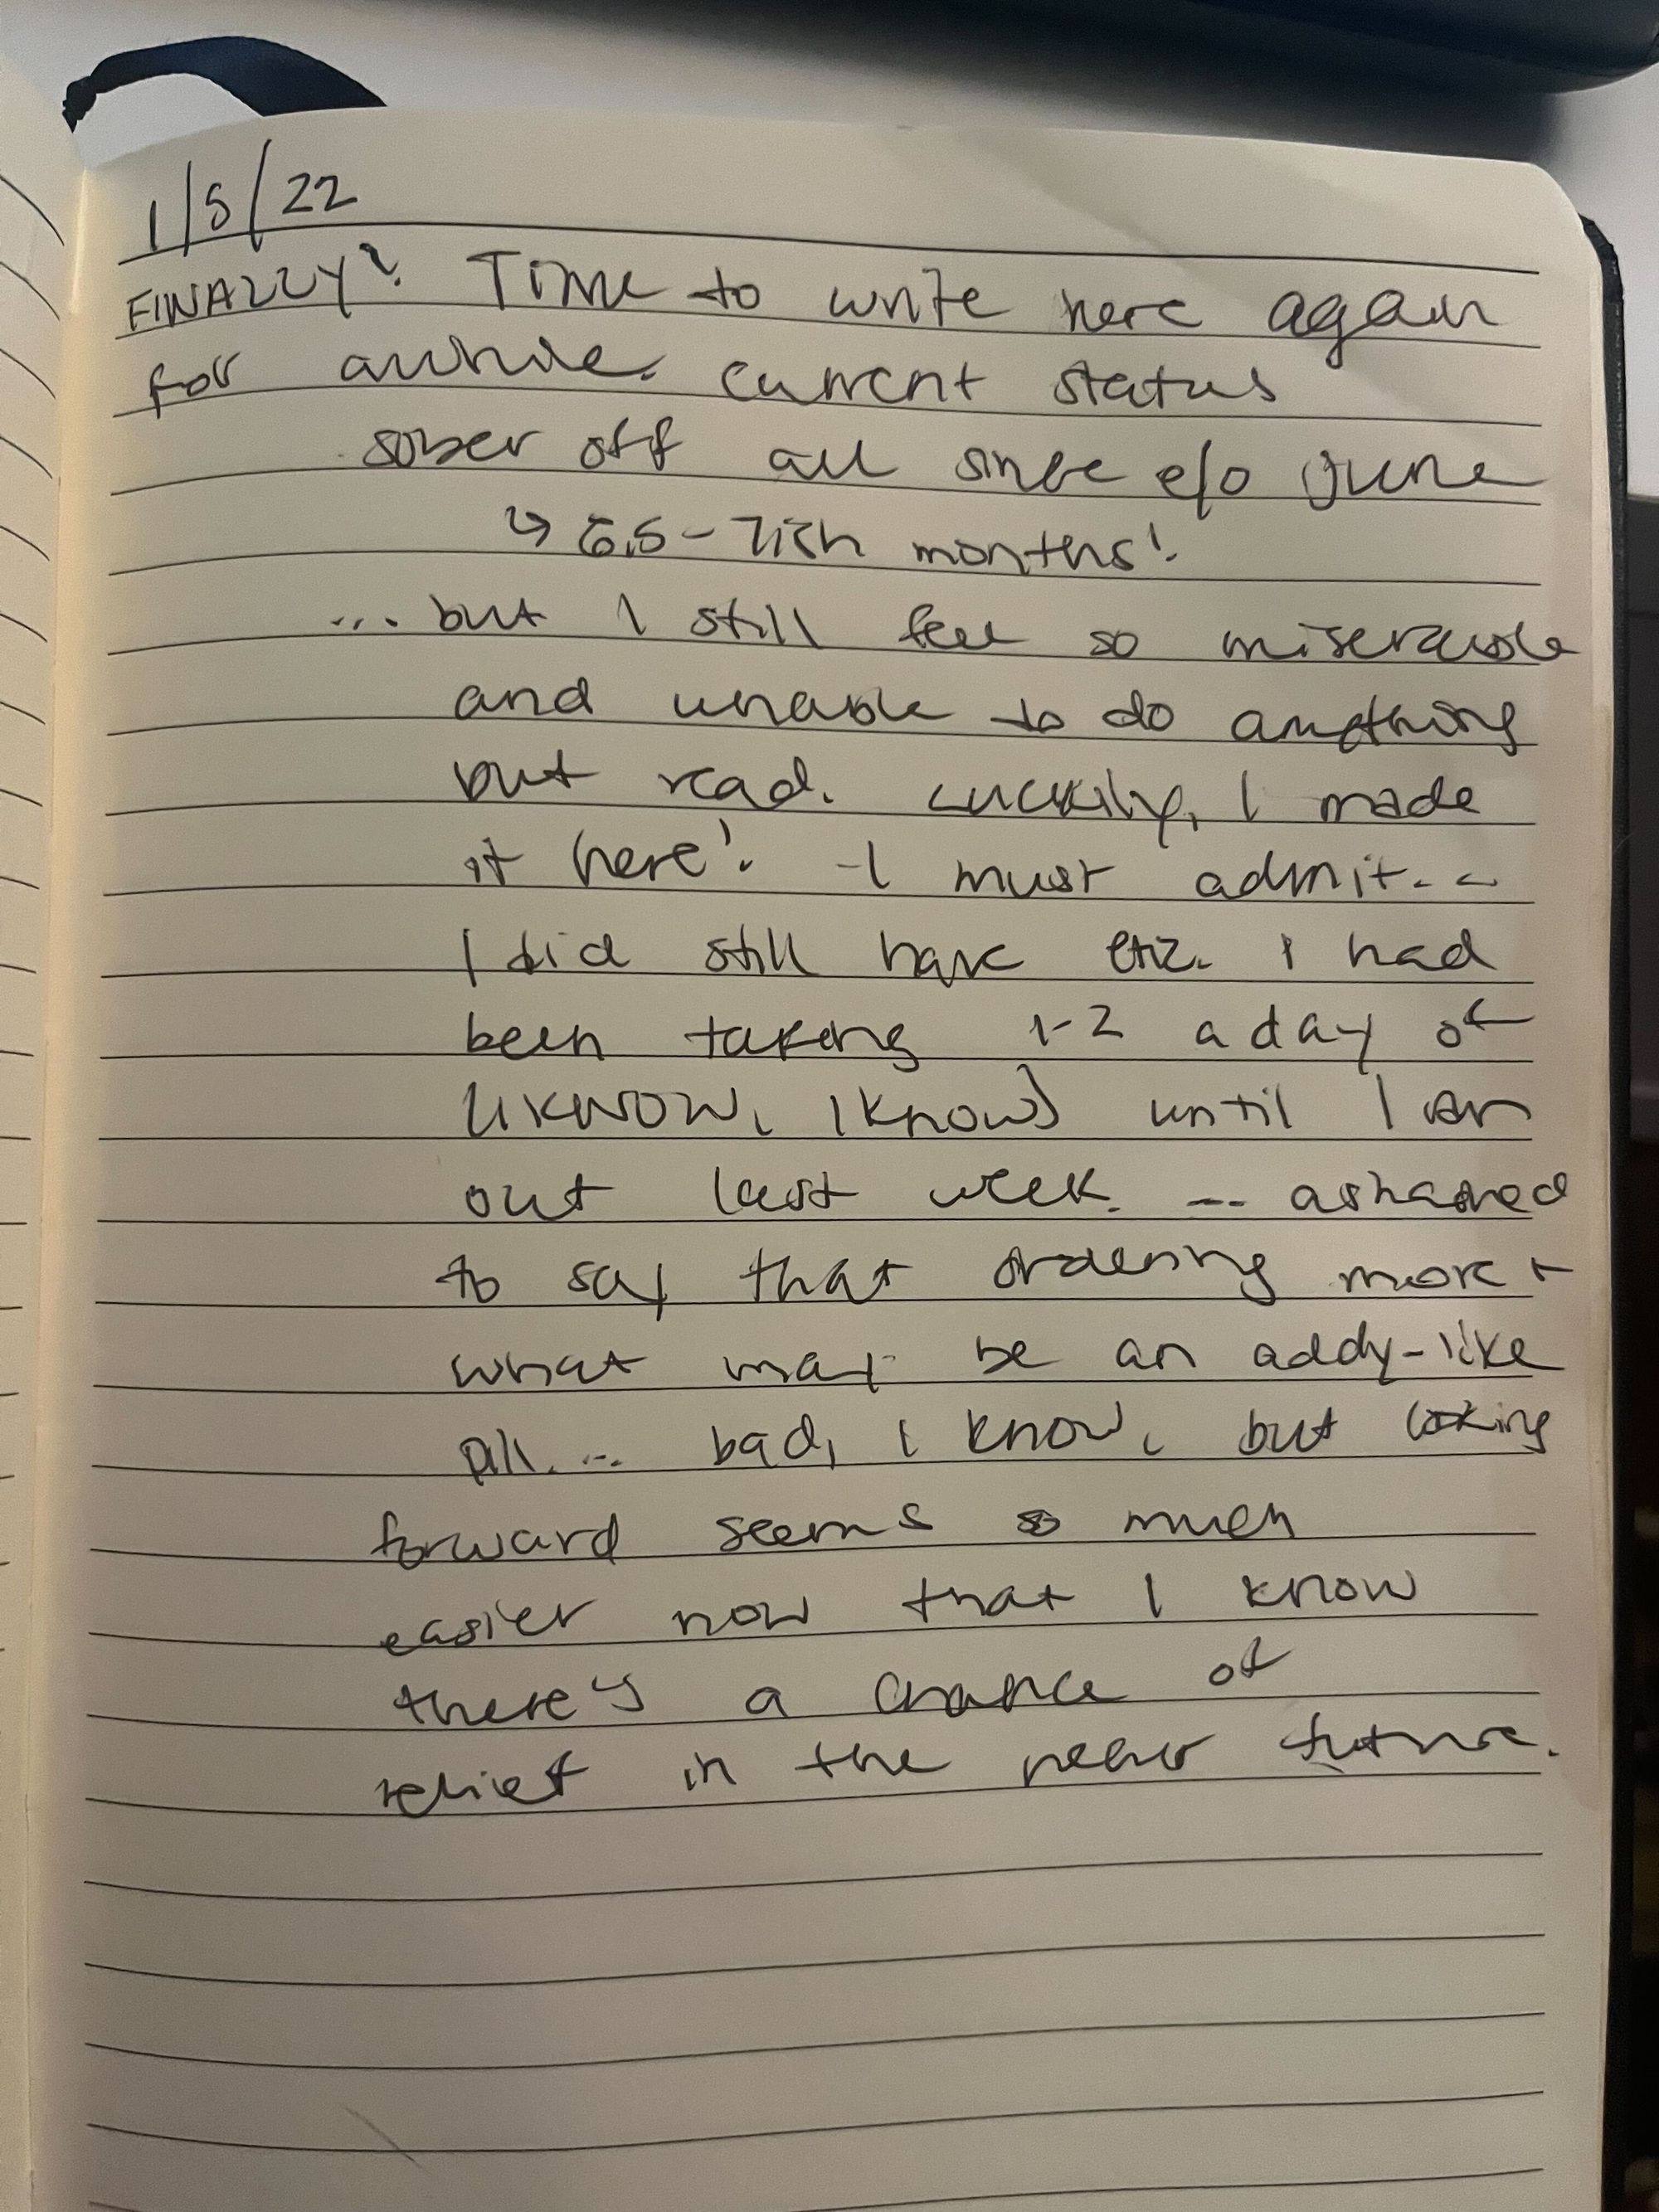 1/5/22
FINALLY! Time to write here again
for awhile. Current status
sober off all since e/o June
↳ 6.5-7ish months!
... but I still feel so miserable
and unable to do anything
but read. Luckily, I made
it here! - I must admit...
I did still have etiz. I had
been taking 1-2 a day of
(I KNOW, I know) until I ran
out last week. ... ashamed
to say that ordering more +
what may be an addy-like
pill. ... bad, I know, but looking
forward seems so much
easier now that I know
there's a chance of
relief in the near future.